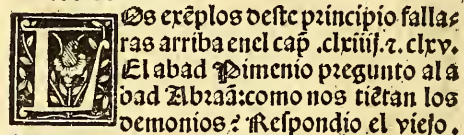 LOs exẽplos deste principio falla⸗
ras arriba enel cap̃ .clxiiij.⁊. clxv.
El abad Pimenio pregunto al a
bad Abraã:como nos tiẽtan los
demonios? Respondio el viejo.